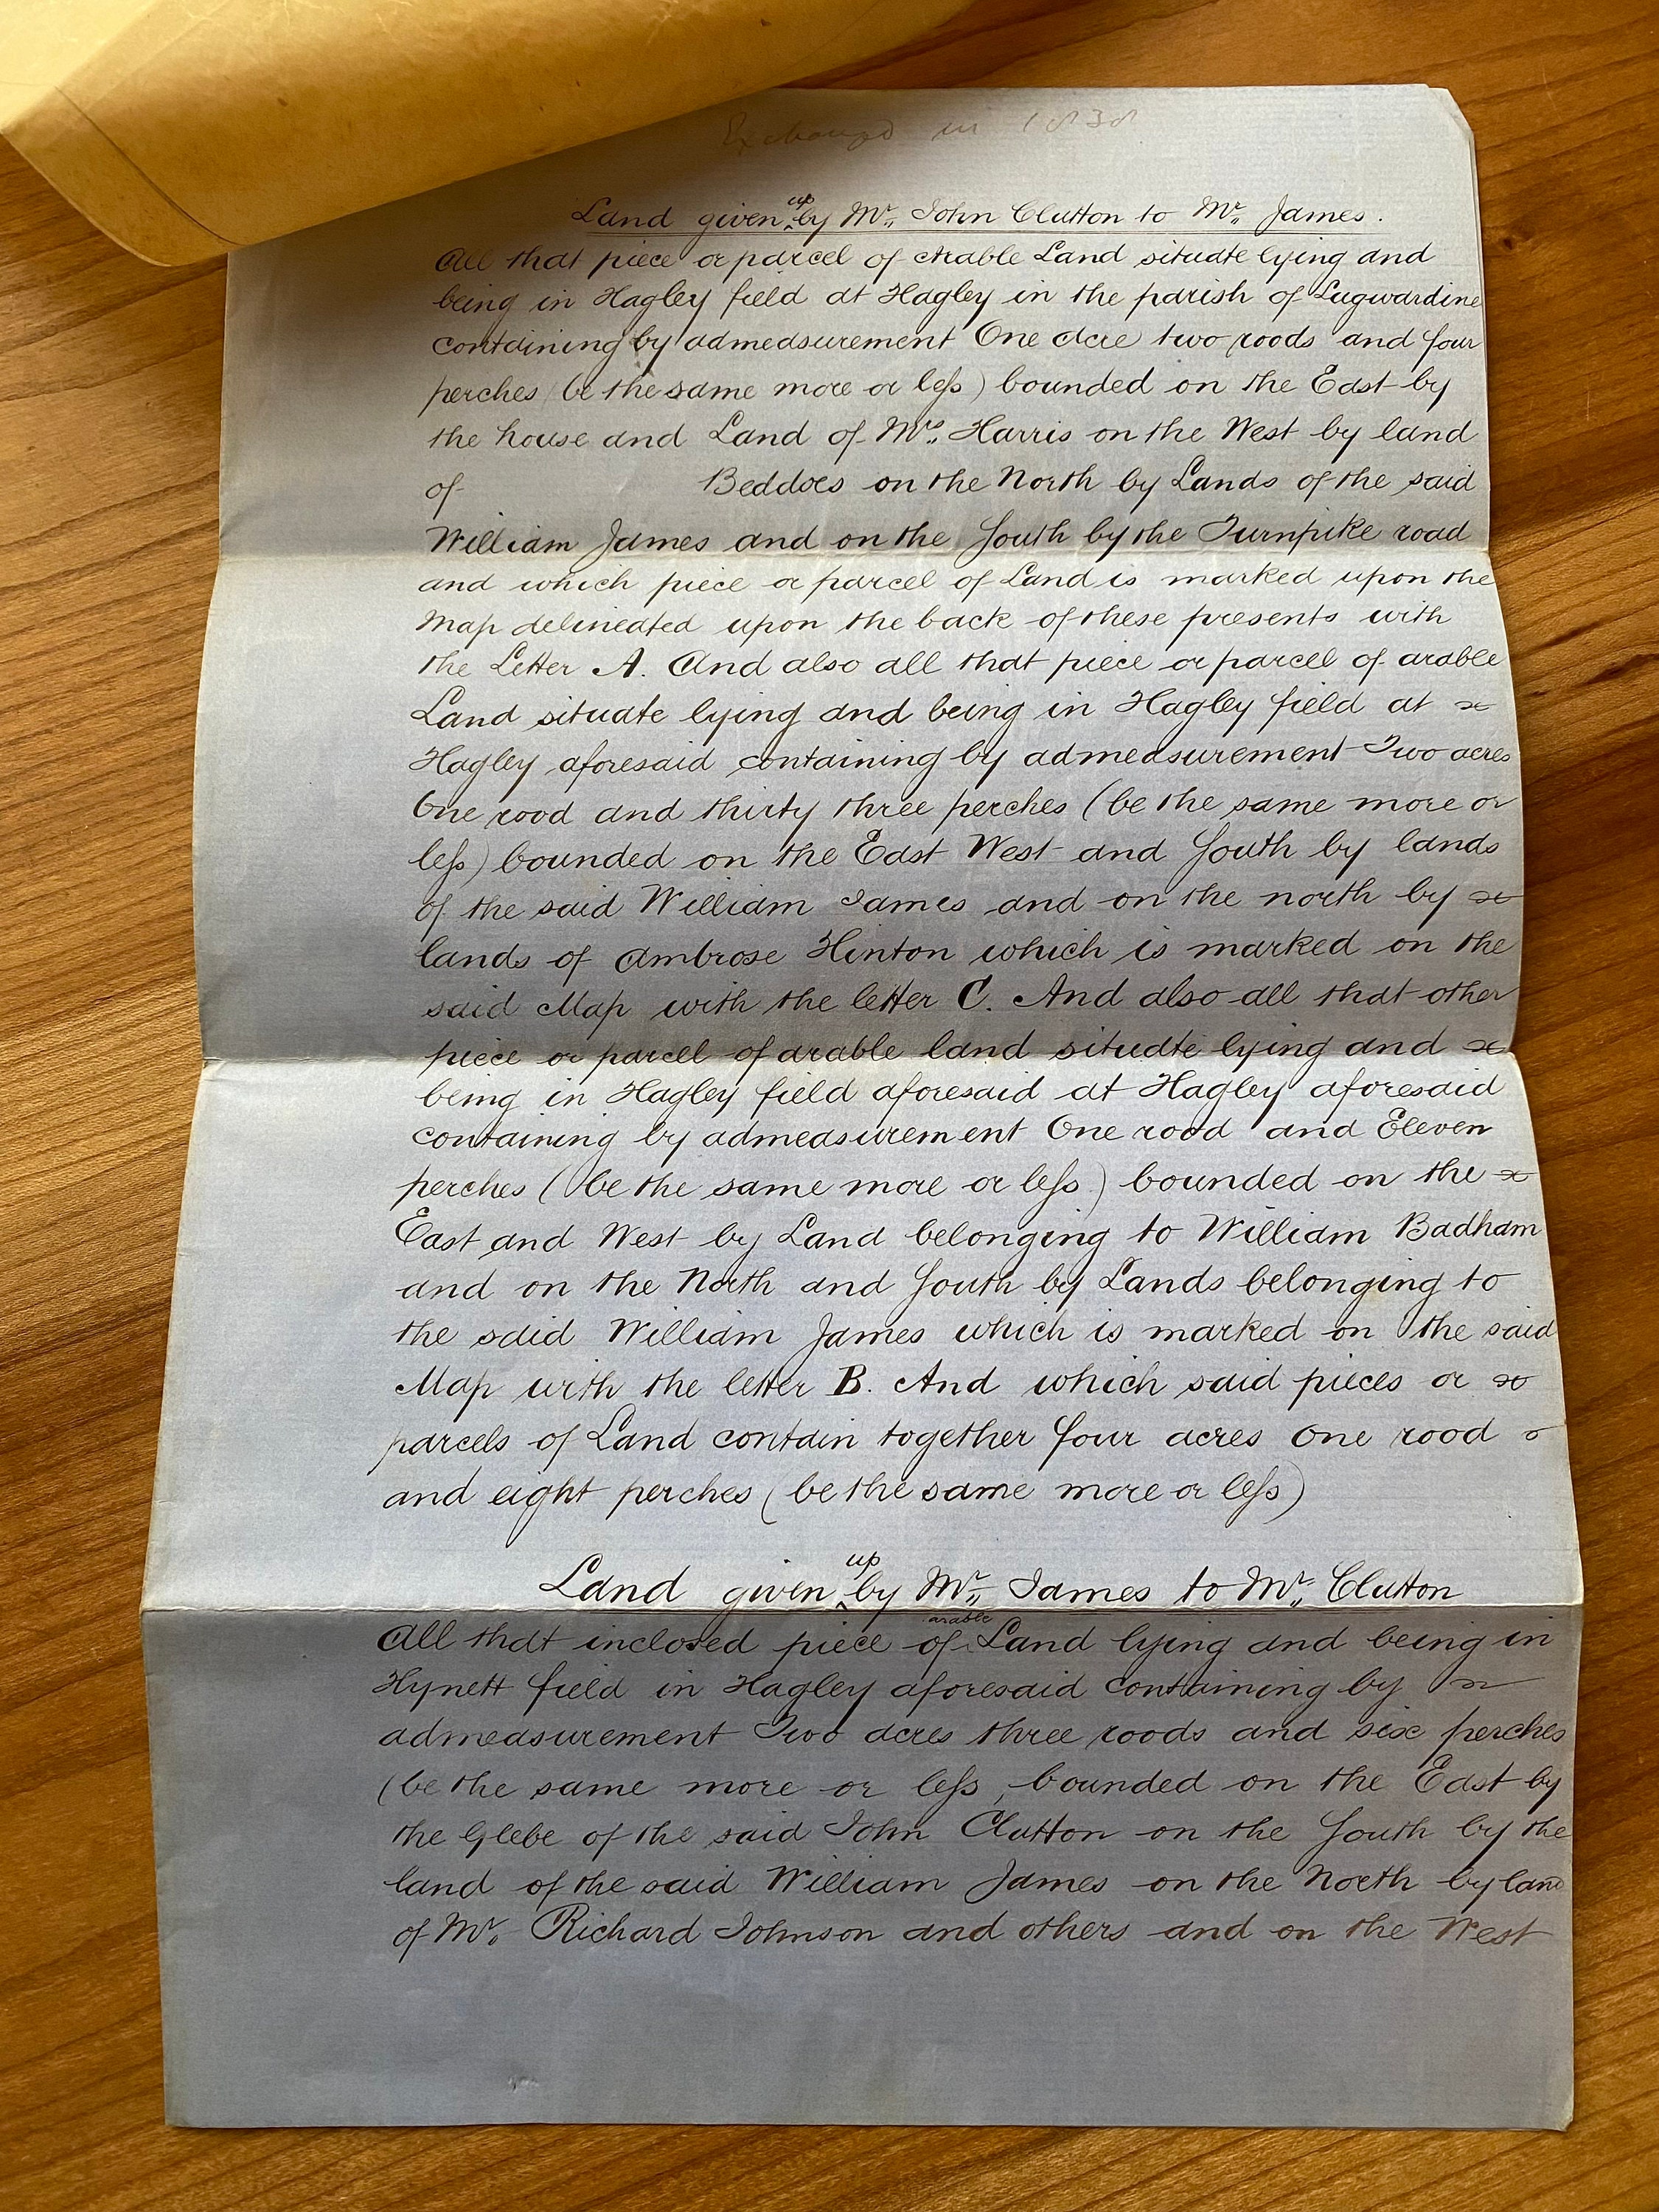 Exchanged in 1838
Land given up by Mr. John Clutton to Mr. James.
All that piece or parcel of Arable Land situate lying and
being in Hagley field at Hagley in the parish of Lugwardine
containing by admeasurement One acre two roods and four
perches (be the same more or less) bounded on the East by
the house and Land of Mrs. Harris on the West by land
of Beddoes on the North by Lands of the said
William James and on the South by the Turnpike road
and which piece or parcel of Land is marked upon the
Map delineated upon the back of these presents with
the Letter A. And also all that piece or parcel of arable
Land situate lying and being in Hagley field at
Hagley aforesaid containing by admeasurement Two acres
One rood and thirty three perches (be the same more or
less) bounded on the East West and South by lands
of the said William James and on the north by
lands of Ambrose Hinton which is marked on the
said Map with the letter C. And also all that other
piece or parcel of arable land situate lying and
being in Hagley field aforesaid at Hagley aforesaid
containing by admeasurement One rood and Eleven
perches (be the same more or less) bounded on the
East and West by Land belonging to William Badham
and on the North and South by Lands belonging to
the said William James which is marked on the said
Map with the letter B. And which said pieces or
parcels of Land contain together four acres one rood
and eight perches (be the same more or less)
Land given up by Mr. James to Mr. Clutton
All that inclosed piece of arable Land lying and being in
Hynett field in Hagley aforesaid containing by
admeasurement Two acres three roods and six perches
(be the same more or less, bounded on the East by
the Glebe of the said John Clutton on the South by the
land of the said William James on the North by land
of Mr. Richard Johnson and others and on the West